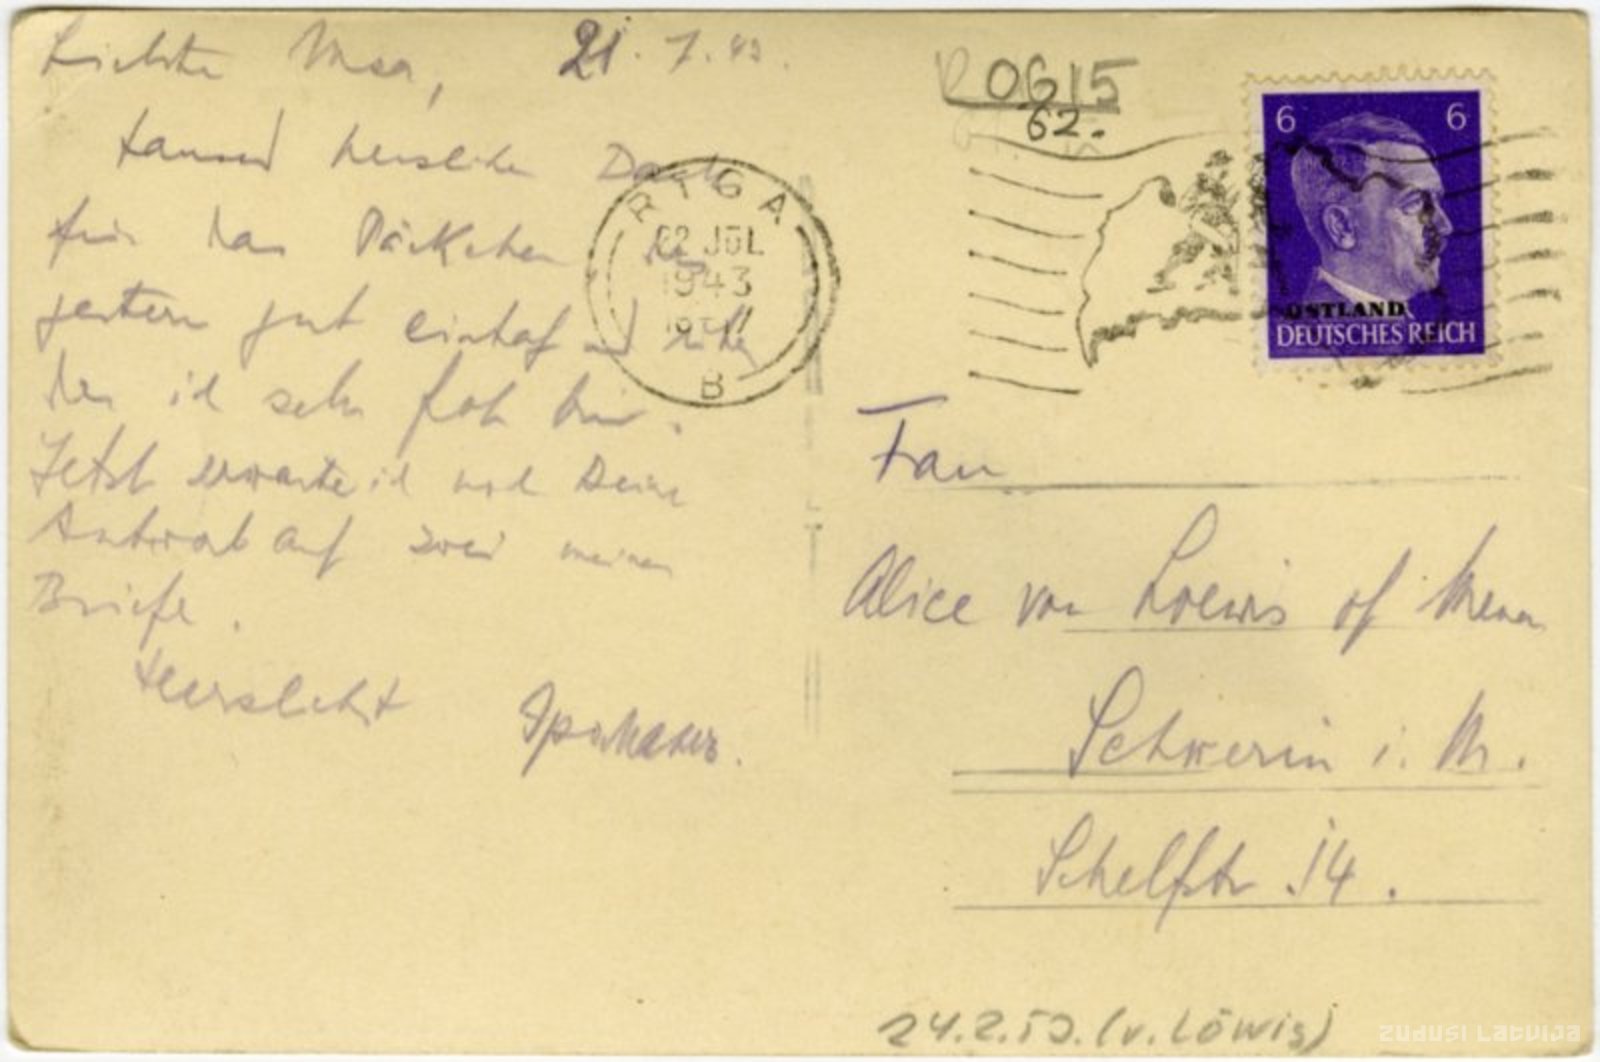 Liebste Msa, 21.7.43.
tausend herzlichen Dank
für das Päckchen das
gestern gut eintraf und über
den ich sehr froh bin.
Jetzt erwarte ich noch Deine
Antwort auf zwei meiner
Briefe.
Herzlichst
RIGA
22 JUL
1943
B
0615
62.
6 6
OSTLAND
DEUTSCHES REICH
Frau
Alice von Loewis of Menar
Schwerin i. M.
Schelfstr. 14.
24.2.50. (v. Löwis)
zudusi Latvija